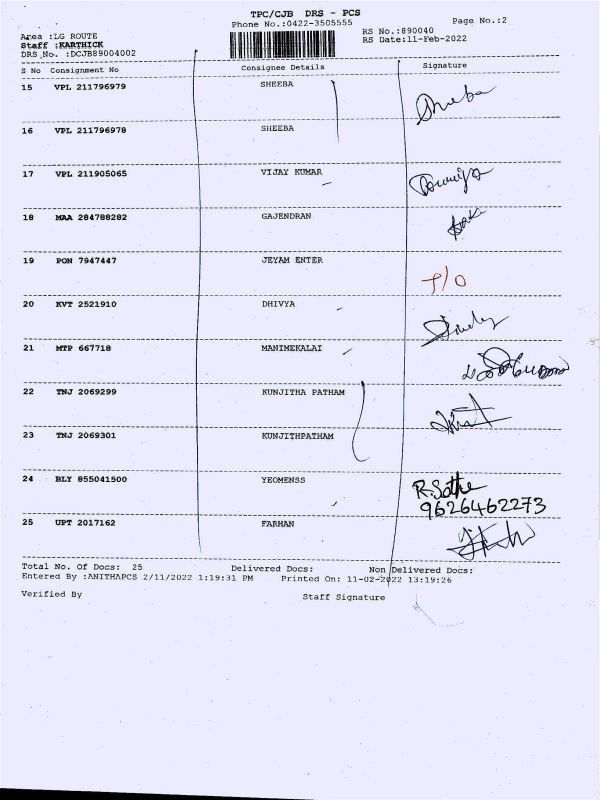 TPC/CJB DRS - PCS
Phone No.:0422-3505555
Page No.:2
Area :LG ROUTE
RS No.:890040
Staff :KARTHICK
RS Date:11-Feb-2022
DRS No. :DCJB89004002
S No Consignment No Consignee Details Signature
15 VPL 211796979 SHEEBA Sheeba
16 VPL 211796978 SHEEBA
17 VPL 211905065 VIJAY KUMAR
18 MAA 284788282 GAJENDRAN
19 PON 7947447 JEYAM ENTER
20 KVT 2521910 DHIVYA
21 MTP 667718 MANIMEKALAI
22 TNJ 2069299 KUNJITHA PATHAM
23 TNJ 2069301 KUNJITHPATHAM
24 BLY 855041500 YEOMENSS R.Sathe
9626462273
25 UPT 2017162 FARHAN
Total No. Of Docs: 25 Delivered Docs: Non Delivered Docs:
Entered By :ANITHAPCS 2/11/2022 1:19:31 PM Printed On: 11-02-2022 13:19:26
Verified By Staff Signature